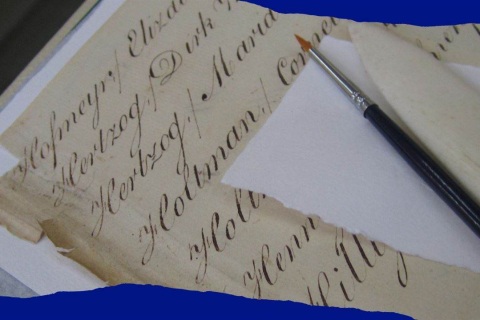 Hofmeyr, Eliza
Hertzog, Dirk
Hertzog, Maria
Holtman, Corne
Holt
Henn
Hilli